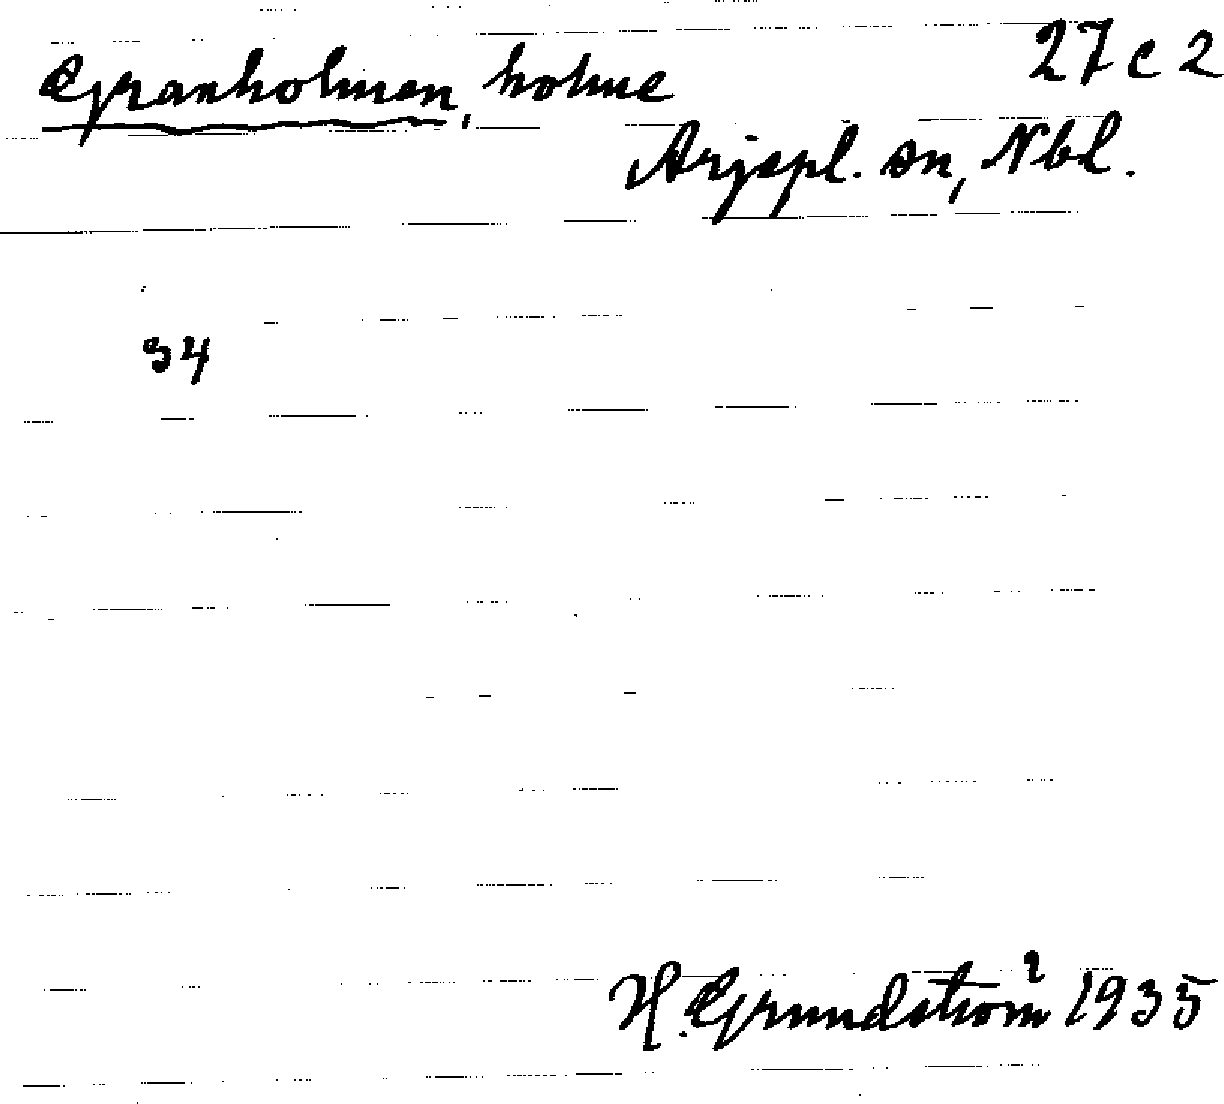 Granholmen, holme
27 c 2
Arjepl. sn, Nbl.
34
H. Grundström 1935